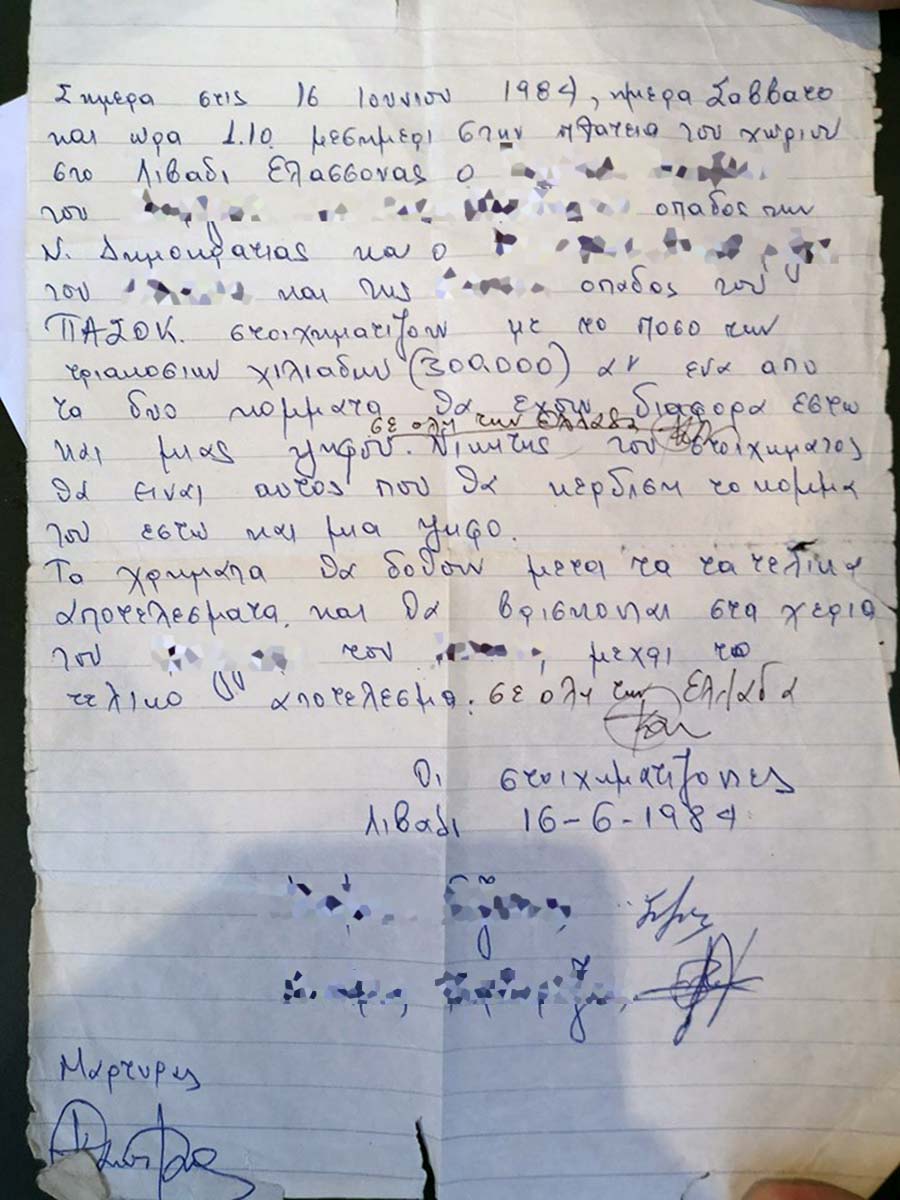 Σημερα στις 16 Ιουνιου 1984, ημερα Σαββατο
και ωρα 1.10 μεσημερι στην πλατεια του χωριου
στο Λιβαδι Ελασσονας ο
του οπαδος της
Ν. Δημοκρατιας και ο
του και της οπαδος του
ΠΑΣΟΚ. στοιχηματιζουν με το ποσο των
τριακοσιων χιλιαδων (300.000) αν ενα απο
τα δυο κομματα θα εχουν διαφορα εστω
σε ολη την Ελλαδα
και μιας ψηφου. Νικητης του στοιχηματος
θα ειναι αυτος που θα κερδιση το κομμα
του εστω και μια ψηφο.
Τα χρηματα θα δοθουν μετα τα τα τελικα
αποτελεσματα, και θα βρισκονται στα χερια
του του , μεχρι το
τελικο αποτελεσμα. σε ολη την Ελλαδα
Οι στοιχηματιζοντες
Λιβαδι 16-6-1984
Μαρτυρες